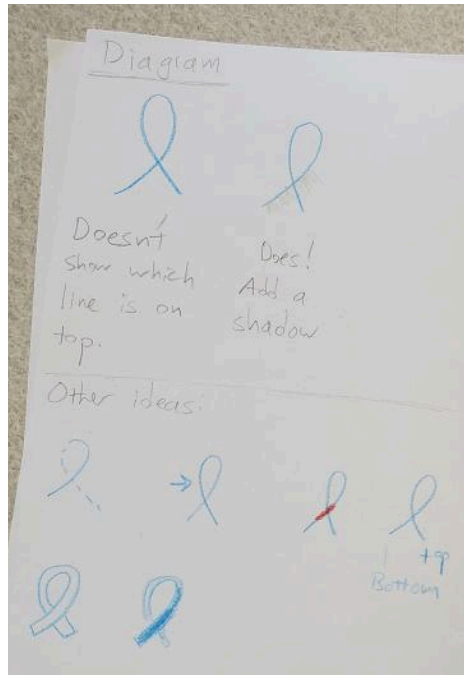 Diagram
Doesn't
show which
line is on
top.
Does!
Add a
shadow
Other ideas.
top
Bottom